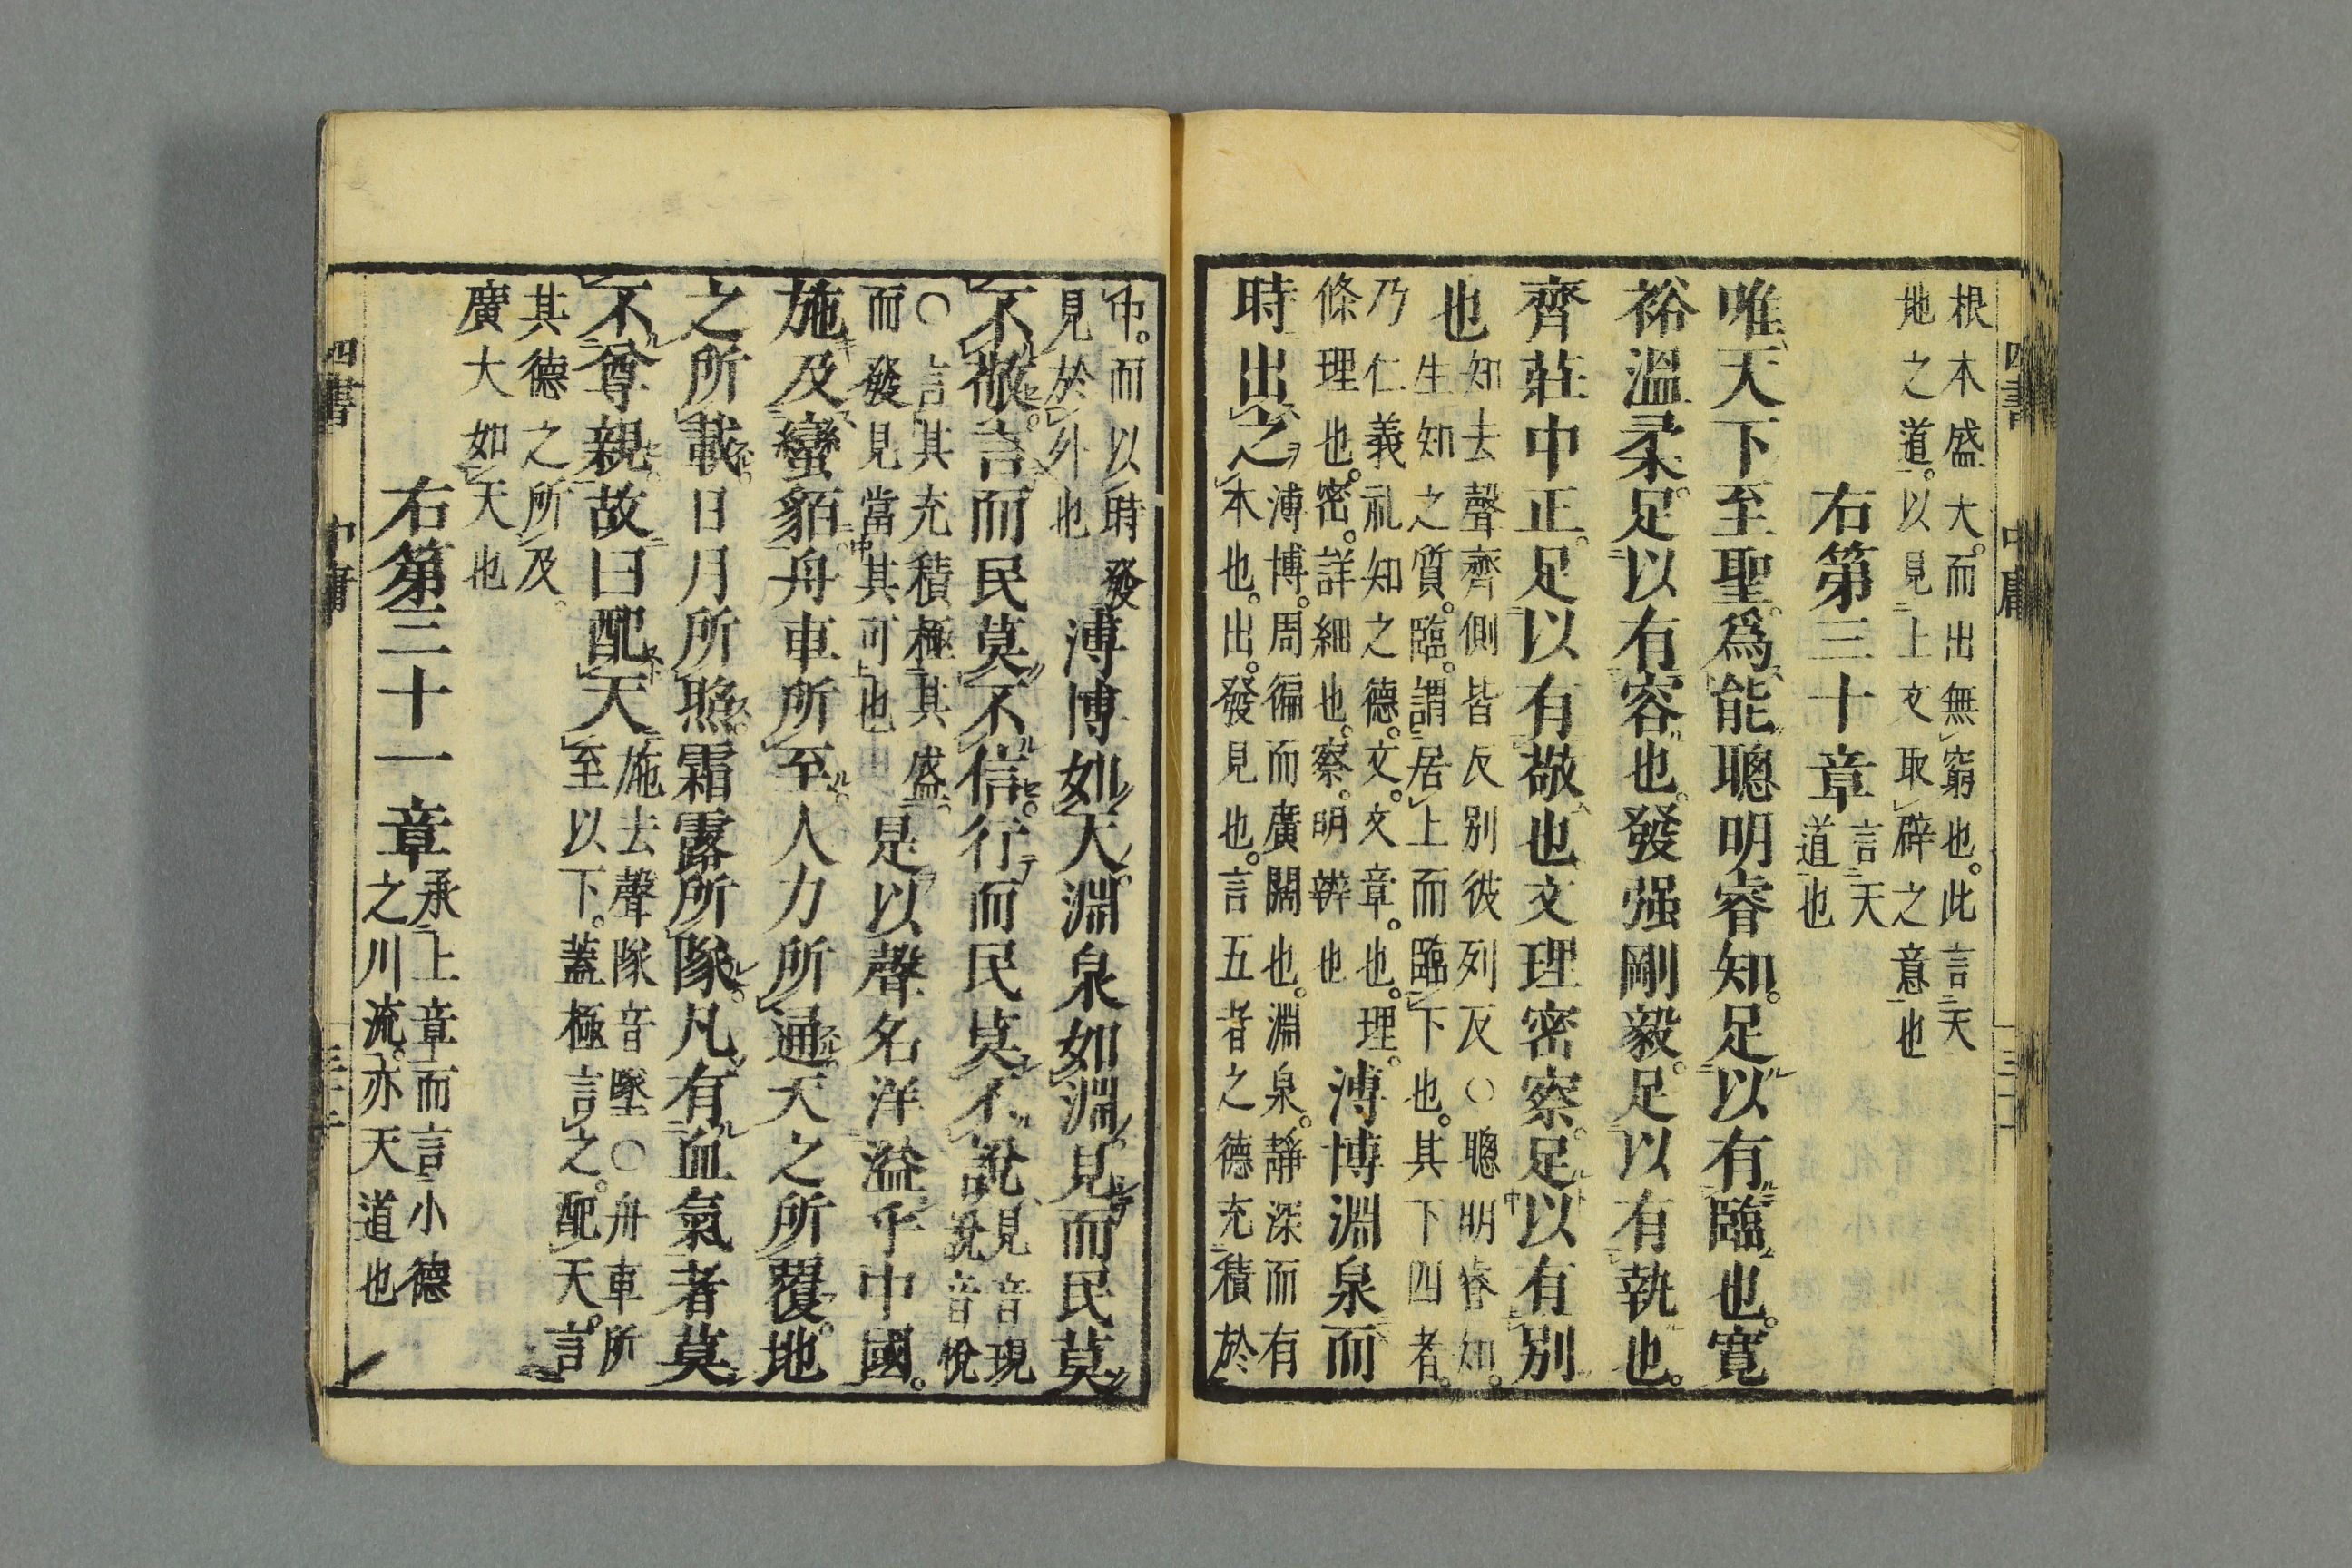 根本盛大。而出無窮也。此言天
地之道。以見上文取辟之意也
右第三十章言天
道也
唯天下至聖。爲能聰明睿知。足以有臨也。寬
裕溫柔。足以有容也。發强剛毅。足以有執也。
齊莊中正。足以有敬也。文理密察。足以有別
也知去聲齊側皆反別彼列反○聰明睿知。
生知之質。臨。謂居上而臨下也。其下四者。
乃仁義礼知之德。文。文章。也。理。
條理也。密。詳細也。察。明辨也
溥博淵泉而
時出之溥博。周徧而廣闊也。淵泉。靜深而有
本也。出。發見也。言五者之德充積於
中。而以時發
見於外也
溥博如天。淵泉如淵。見而民莫
不敬。言而民莫不信。行而民莫不說見音現
說音悅
○言其充積極其盛。
而發見當其可也
是以聲名洋溢乎中國。
施及蠻貊。舟車所至。人力所通。天之所覆。地
之所載。日月所照。霜露所隊。凡有血氣者莫
不尊親。故曰配天施去聲隊音墜○舟車所
至以下。蓋極言之。配天。言
其德之所及。
廣大如天也
右第三十一章承上章而言小德
之川流。亦天道也
四書
中庸
四書
中庸